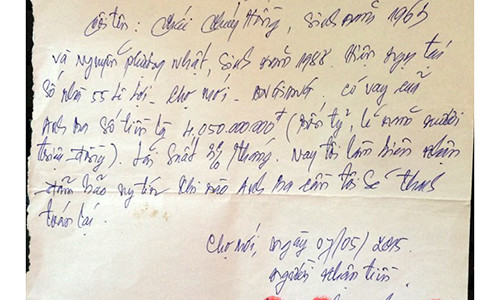 tôi tên: Thái Thúy Hồng, sinh năm 1965
và Nguyễn Phương Nhật, sinh năm 1988. Hiện ngụ tại
Số nhà 55 Lê Lợi - Chợ mới - có vay của
Anh Ba Số tiền là 4.050.000.000đ (bốn tỷ, lẻ năm mươi
triệu đồng). Lãi suất 2%/tháng. Nay tôi làm biên nhận
đảm bảo uy tín khi nào Anh Ba cần tôi sẽ thanh
toán lại.
Chợ mới, ngày 07/05/2015
người nhận tiền.